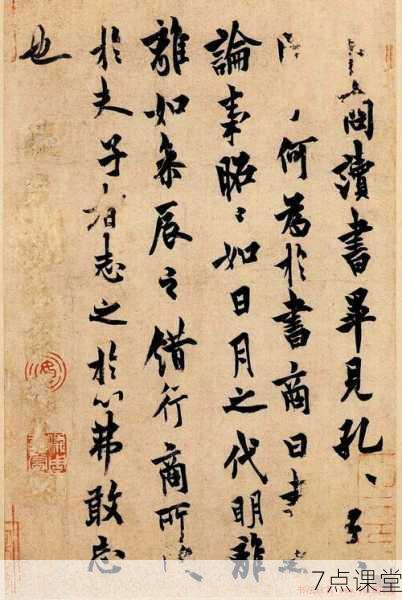 商讀書畢見孔、子
何為於書商曰書
論事昭〻如日月之代明離
離如參辰之錯行商所
於夫子者志之於心弗敢忘
也
7点课堂